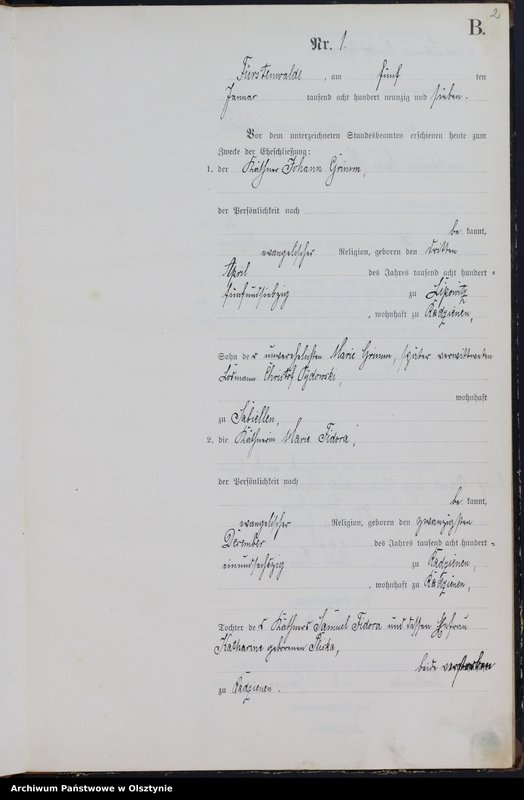 2
B.
Nr. 1.
Fürstenwalde, am fünf ten
Januar tausend acht hundert neunzig und sieben.
Vor dem unterzeichneten Standesbeamten erschienen heute zum
Zwecke der Eheschließung:
1. der Käthner Johann Grimm,
der Persönlichkeit nach
be kannt,
evangelischer Religion, geboren den dritten
April des Jahres tausend acht hundert
fünfundsiebzig zu Lipowitz
, wohnhaft zu Radzienen,
Sohn der unverehelichten Marie Grimm, später verwittweten
Losmann Christof
wohnhaft
zu
2. die Käthnerin Marie Fidora,
der Persönlichkeit nach
be kannt,
evangelischer Religion, geboren den zwanzigsten
Dezember des Jahres tausend acht hundert
einundsechszig zu Radzienen,
, wohnhaft zu Radzienen,
Tochter des Käthners Samuel Fidora und dessen Ehefrau
Katharine geborenen
beide verstorben
zu Radzienen.
Archiwum Państwowe w Olsztynie